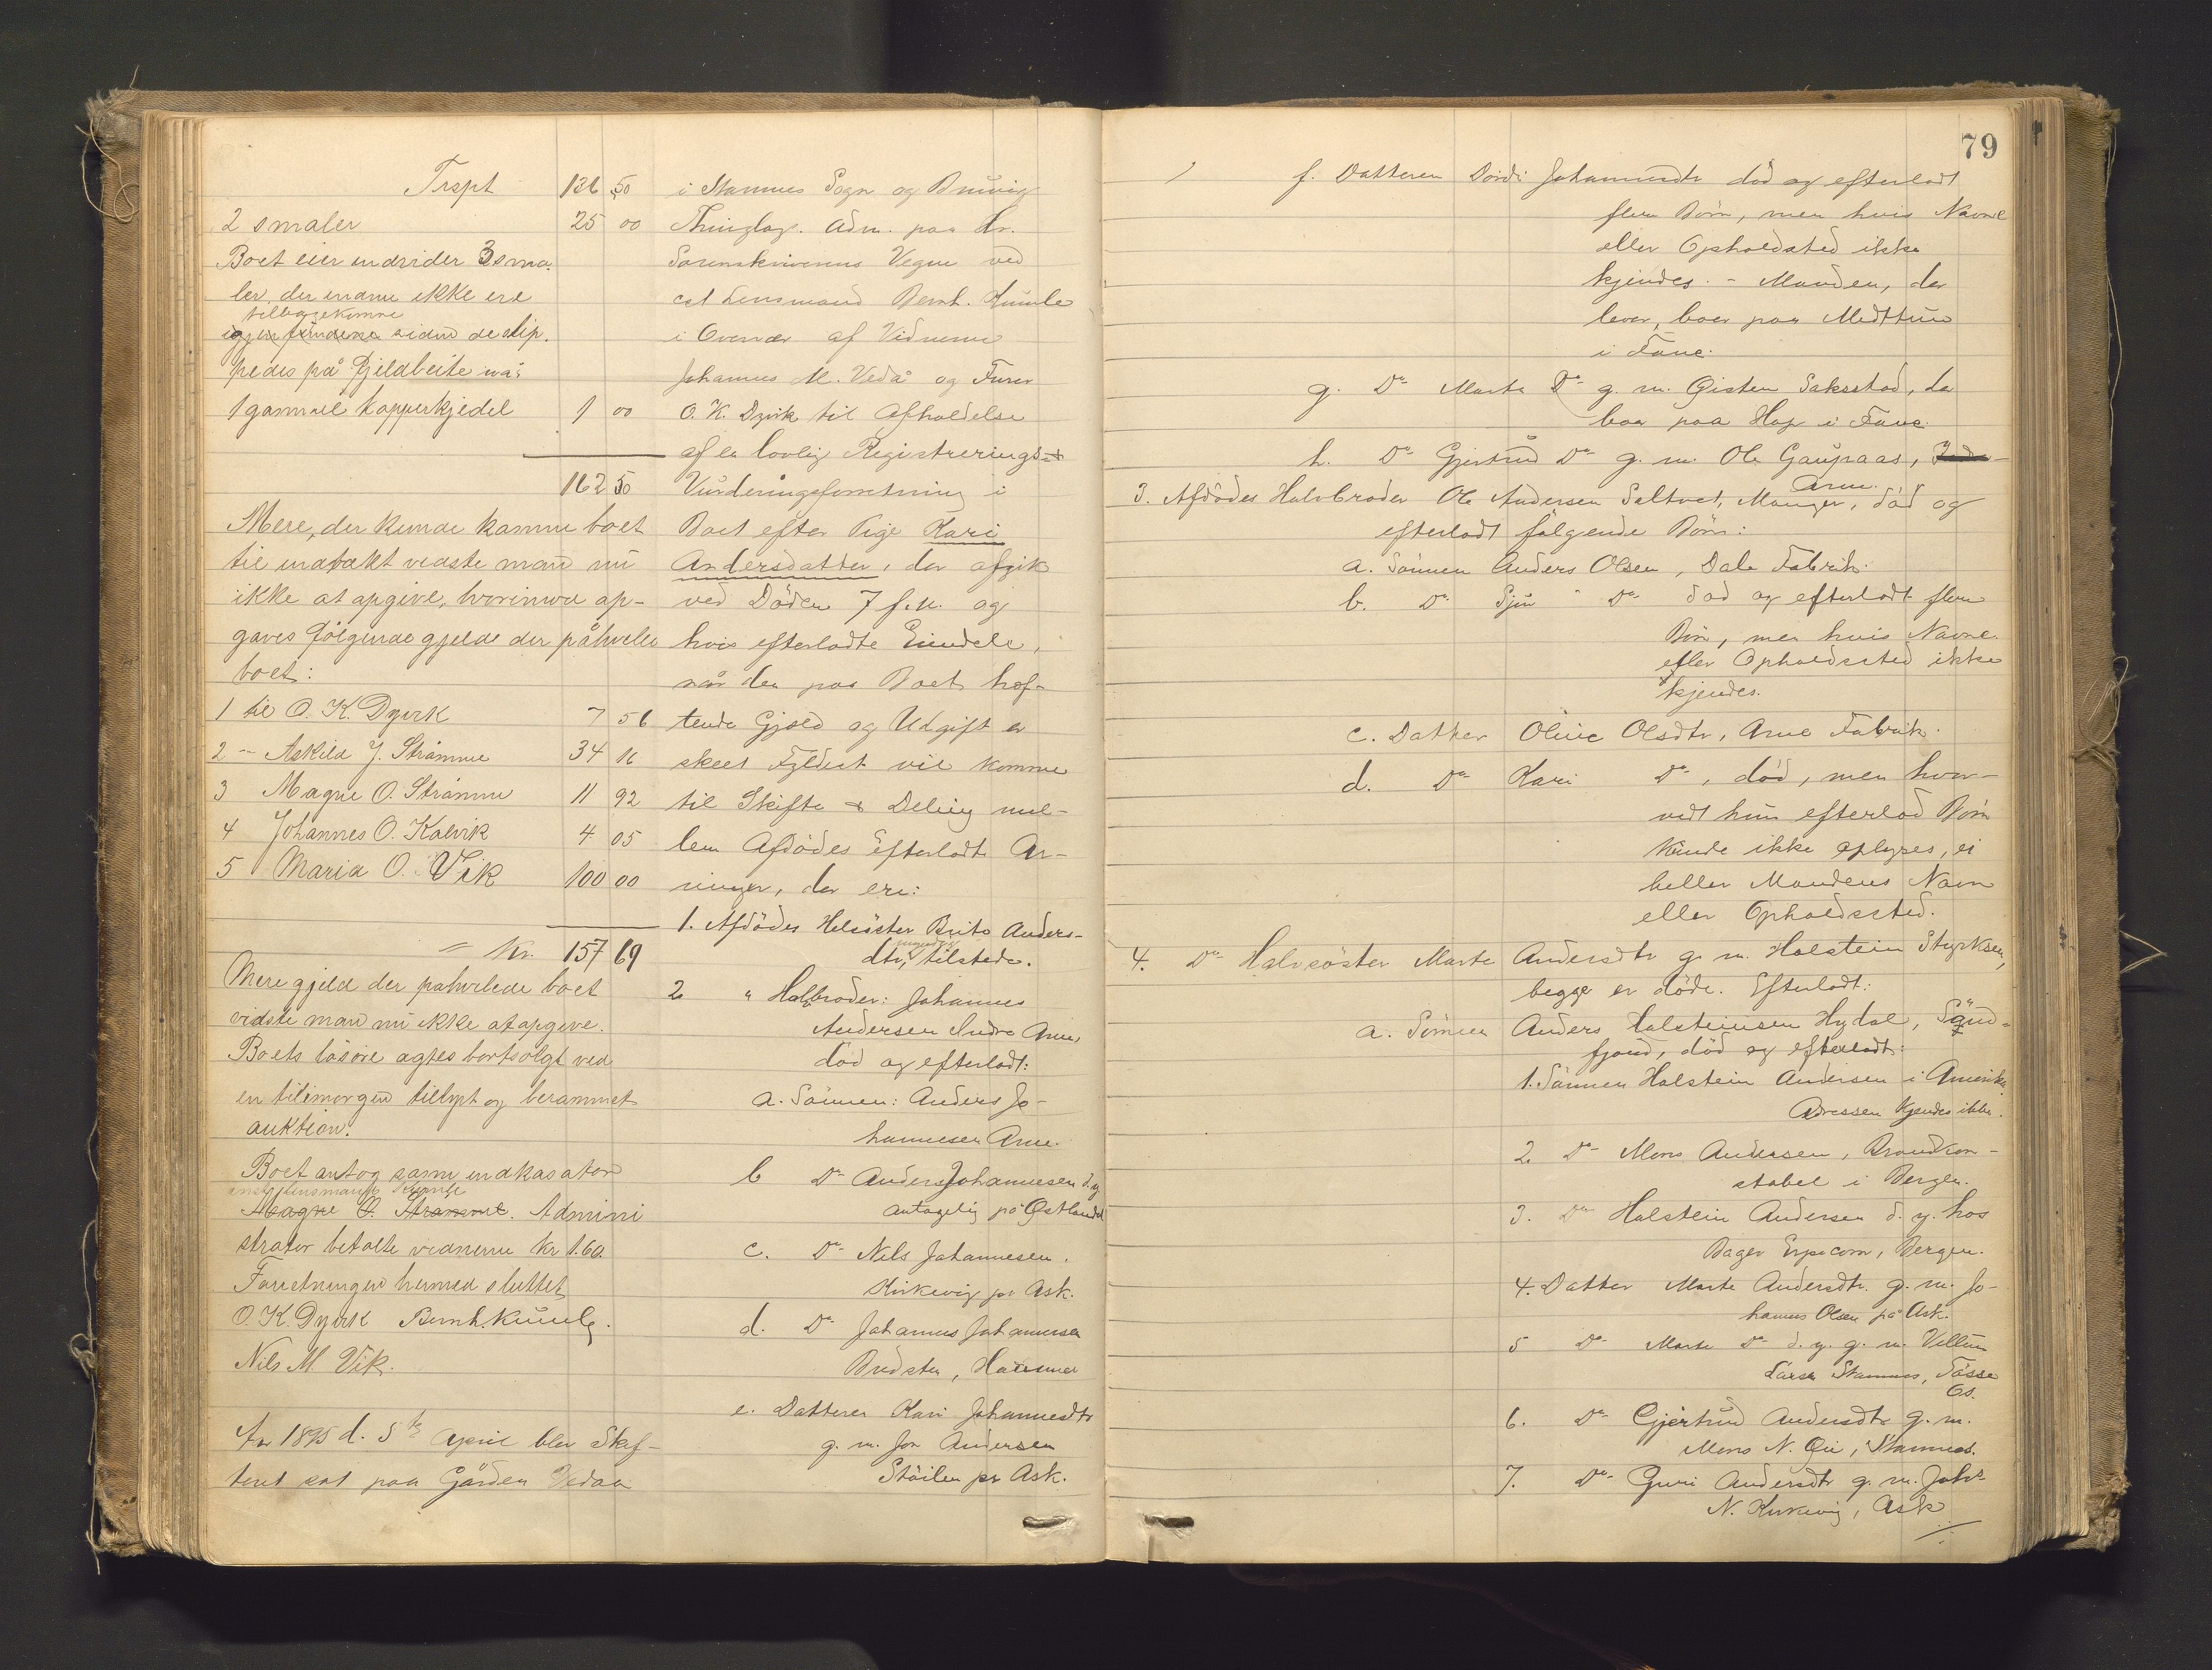 Trspt 136 50
2 smaler 25 00
Boet eier endvider 3 sma-
ler, der endnu ikke ere
tilbagekomne
igjenfundene siden de slip-
pedes på Fjeldbeite
1 gammel kopperkjedel 1 00
162 50
Mere, der kunde komme boet
til indtækt vidste man nu
ikke at opgive, hvorimod op-
gaves følgende gjeld der påhviler
boet:
1 til O. K. Dyvik 7 56
2 - Askild J. Strømme 34 16
3 Magne O. Strømme 11 92
4 Johannes O. Kalvik 4 05
5 Maria O. Vik 100 00
Kr. 157 69
Mere gjeld der påhvilede boet
vidste man nu ikke at opgive.
Boets løsøre agtes bortsolgt ved
en tilimorgen tillyst og berammet
auktion.
Boet antog som indkasator
Lensmand Kunle
Magne O. Strømme. Admini
strator betalte vidnerne Kr 1.60.
Forretningen hermed sluttet
O. K. Dyvik Bernh. Kunle.
Nils M. Vik.
Aar 1895 d. 5te April blev Skif-
teret sat paa Gården Vedaa
i Stamnes Sogn og Bruvig
Thinglag. Adm. paa Hr.
Sorenskriverens Vegne ved
cst Lensmand Bernh. Kunle
i Overvær af Vidnerne
Johannes M. Vedå og
O. K. Dyvik til Afholdelse
af en lovlig Registrerings- &
Vurderingsforretning i
Boet efter Pige Kari
Andersdatter, der afgik
ved Døden 7 f. M. og
hvis efterladte Eiendele,
når den paa Boet hef-
tende Gjæld og Udgift er
skeet Fyldest vil komme
til Skifte & Deling mel-
lem Afdødes efterladte Ar-
vinger, der ere:
1. Afdødes Helsøster Brita Anders-
dtr, tilstede.
2 " Halvbroder: Johannes
Andersen Indre Arne,
død og efterladt:
a. Sønnen: Anders Jo-
hannesen Arne.
b Do Anders Johannesen d.y.
antagelig på Østlandet
c. Do Nils Johannesen.
Kirkevig pr Ask.
d. Do Johannes Johannesen
Bredsten, Hammer
e. Datteren Kari Johannesdtr
g. m. Jon Andersen
Støilen pr Ask.
79
f. Datteren Dordi Johannesdtr død og efterladt
flere Børn, men hvis Navne
eller Opholdsted ikke
kjendes. - Manden, der
lever, boer paa Midttun
i Fane.
g. Do Marta Do g. m. Øisten Saksstad, der
boer paa Hop i Fane.
h. Do Gjertrud Do g. m. Ole Gaupaas,
Arne.
3. Afdødes Halvbroder Ole Andersen Saltvet, Manger, død og
efterladt følgende Børn:
a. Sønnen Anders Olsen, Dale Fabrik.
b. Do Sjur Do død og efterladt flere
Børn, men hvis Navne
eller Opholdssted ikke
kjendes.
c. Datter Oline Olsdtr, Arne Fabrik.
d. Do Kari Do, død, men hvor-
vidt hun efterlod Børn
kunde ikke oplyses, ei
heller Mandens Navn
eller Opholdssted.
4. Do Halvsøster Marte Andersdtr g. m. Holstein Styrksen,
begge er døde. Efterladt:
a. Sønnen Anders Halsteinsen Hydal, Sønd-
fjord, død og efterladt:
1. Sønnen Halstein Andersen i Amerika
Adressen kjendes ikke.
2. Do Mons Andersen, Brandkon-
stabel i Bergen.
3. Do Halstein Andersen d. y. hos
Bager Erpecom, Bergen.
4. Datter Marte Andersdtr. g. m. Jo-
hannes Olsen på Ask.
5 Do Marte Do d. y. g. m. Villum
Larsen Stamnes, Tøsse
Gs.
6. Do Gjertrud Andersdtr g. m.
Mons N. Øie, Stamnes.
7. Do Guri Andersdtr g. m. Johs
N. Kirkevig, Ask